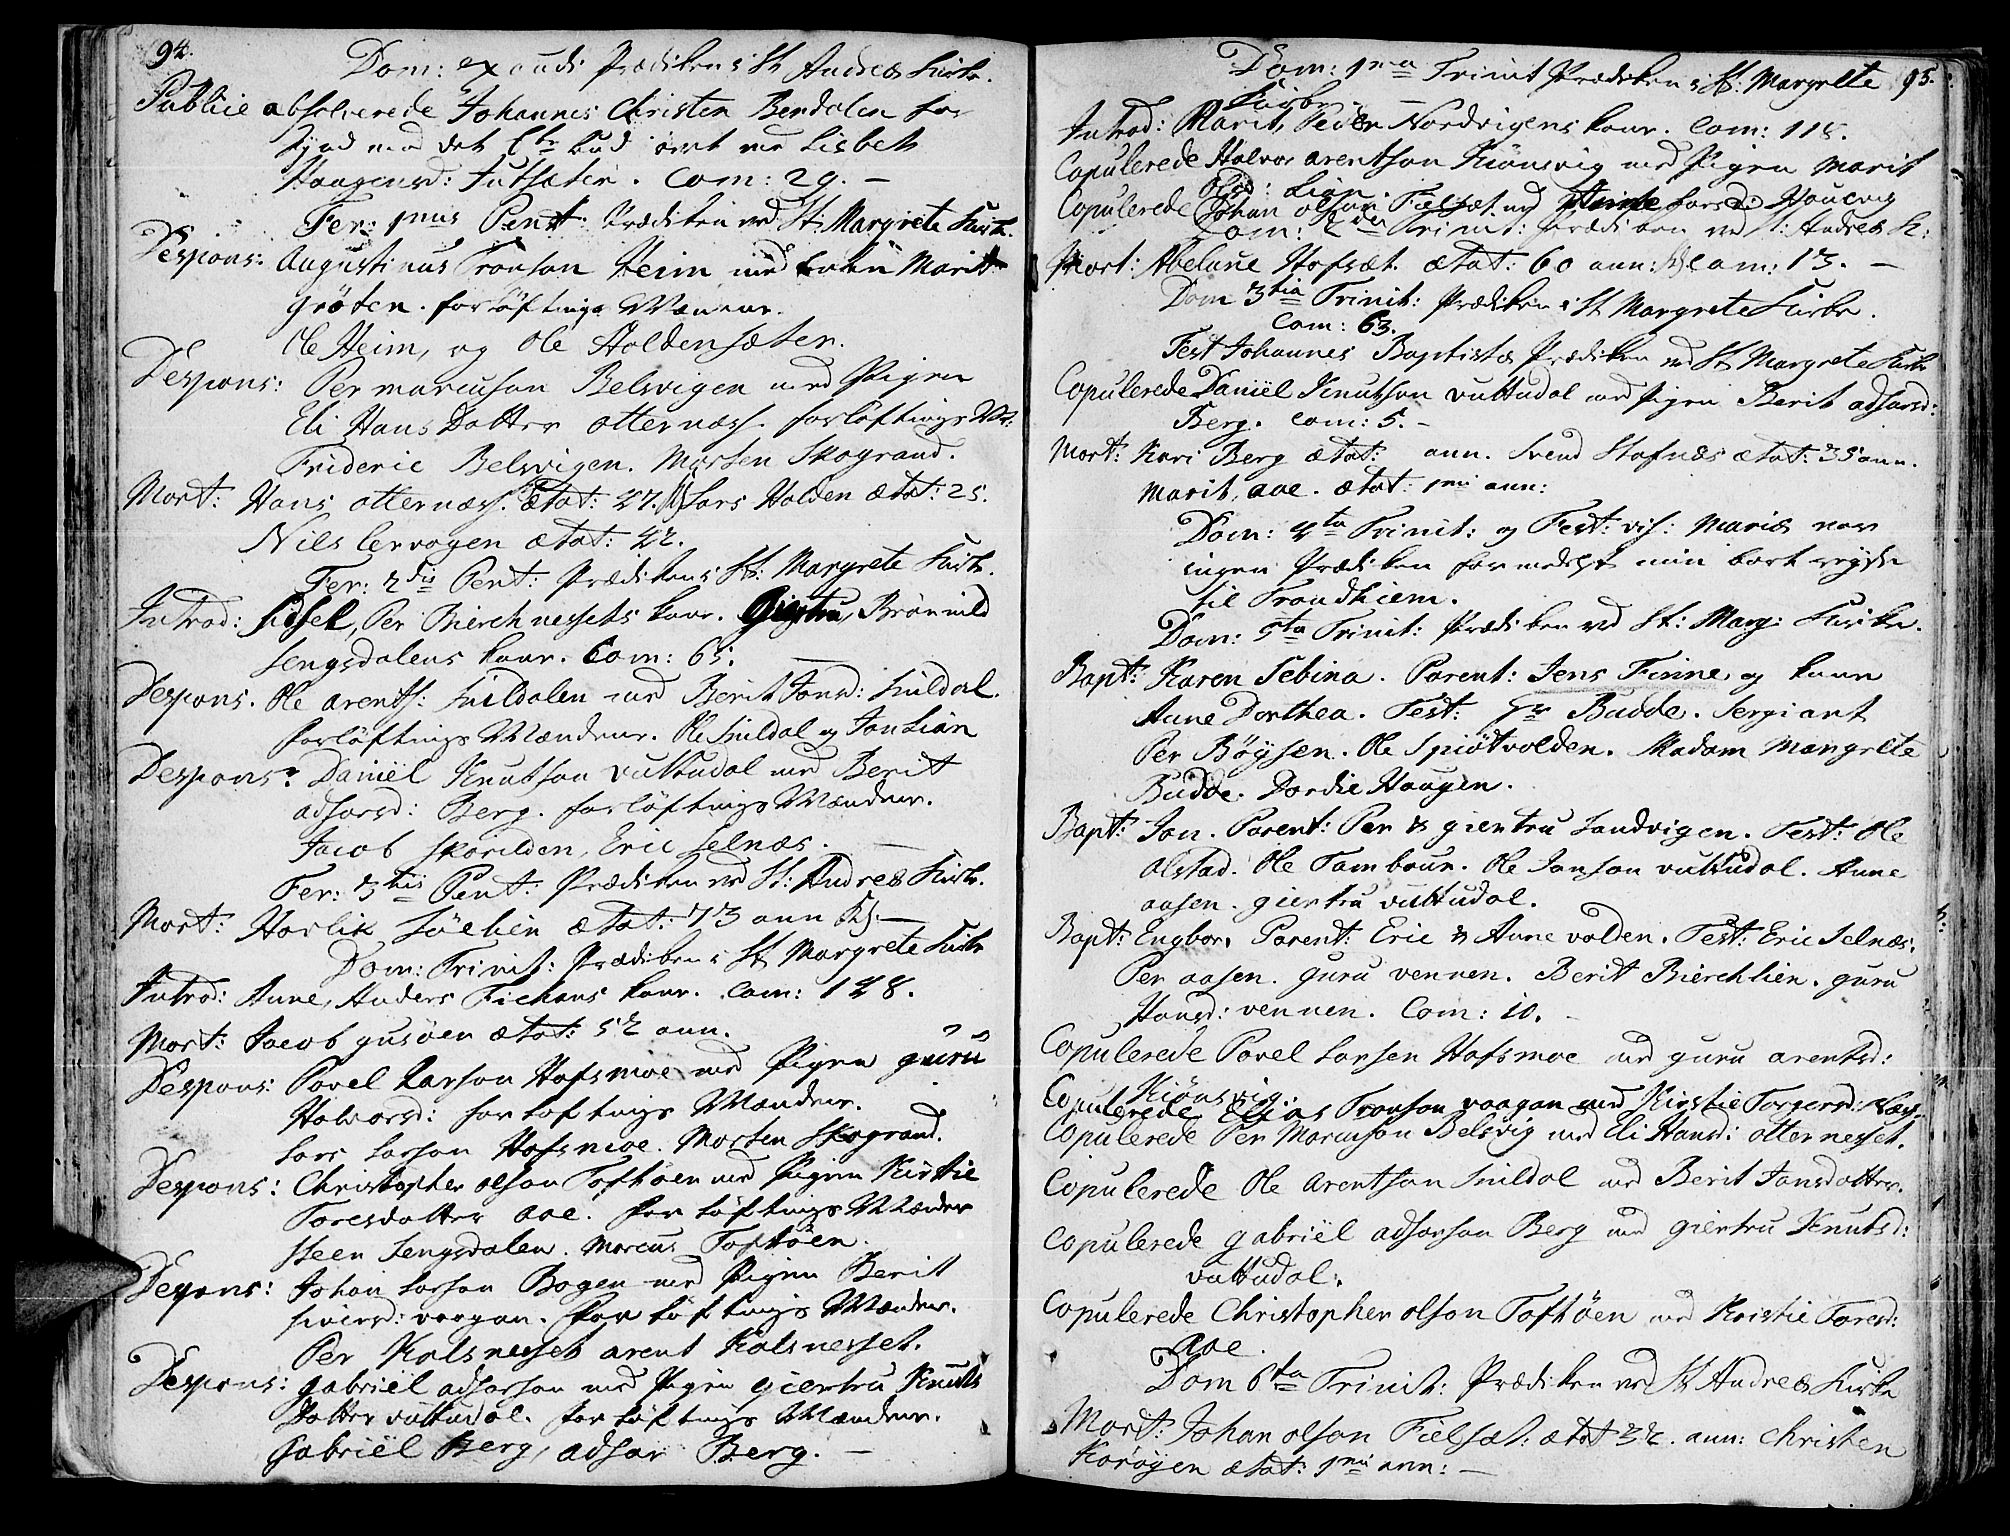 94.
Dom: exaudi Prædiken i St Andreæ Kirke.
Publice absolverede Johannes Christen Berdalen for
synd mod det 6te bud øvet med Lisbeth
Haagensd: Jutsæter. Com: 29. —
Fer: 1mus Pent: Prædiken ved St: Margrete Kirk.
Despons: Augustinus Tronson Heim med Enken Marit
Grøten. forløftings Mænner.
Ole Heim, og Ole Holdensæter.
Despons: Per marcuson Belsvigen med Pigen
Eli HansDatter otternæss. forløftings M:
Frideric Belsvigen. Morten Skogrand.
Mort: Hans otternæss. ætat: 47. Lars Holden ætat: 25.
Nils lervogen ætat: 42.
Fer: 2dis Pent: Prædiken i St: Margrete Kirk.
Introd: Sidsel, Per Bierchnessets kone. Giertru, Brønild
Lengsdalens kone. Com: 65. —
Despons. Ole arents: Snildalen med Berit Jonsd: Snildal.
forløftings Mændene. Ole Snildal og Jon Lian
Despons: Daniël Knutson vuttudal med Berit
adsarsd: Berg. forløftings Mændene.
Jacob Skarilden, Eric Selnæs. —
Fer: 3tiis Pent: Prædiken ved St: Andreæ Kirk.
Mort: Harlik Søelien ætat: 73 ann —
Dom: Trinit: Prædiken i St Margrete Kirk
Introd: Anne, Anders Fiehans kone. Com: 148.
Mort: Jacob gusøen ætat: 52 ann.
Despons: Povel Larson Hofsmoe med Pigen guru
Halvorsd: forløftings Mændene.
Lars Larson Hofsmoe. Morten Skogrand.
Despons: Christopher olson Toftøen med Pigen Kirstie
Toresdatter aae. forløftings Mænder
Steen Lengsdalen. Marcus Toftøen.
Despons: Johan Larson Bogen med Pigen Berit
Siversd: vaagan. forløftings Mændene.
Per Kalsnesset arent Kalsnesset.
Despons: gabriël adsarson med Pigen giertru Knuts
Datter vuttudal. forløftings Mændene.
Gabriël Berg, adsar Berg. —
95.
Dom: 1ma Trinit Prædiken i St: Margrete
Kirke —
Introd: Marit, Peder Nordvigens kone. Com: 118.
Copulerede Halvor arentson Kiønsvig med Pigen Marit
Olsd: Lian.
Copulerede Johan olson Fielsæt med Larsd: Houcvig
Dom: 2den Trinit: Prædiken ved St: Andreæ K:
Mort: Abelune Hofsæt. ætat: 60 ann: Com: 13. —
Dom 3tia Trinit: Prædiken i St Margrete Kirke.
Com: 63.
Fest Johannes Baptistæ Prædiken ved St Margrete Kirke
Copulerede Daniël Knutson vuttudal med Pigen Berit adsarsd:
Berg. Com: 5. —
Mort: Kari Berg ætat: ann. Svend Stafnæs ætat: 35 ann.
Marit, aae. ætat: 1mi ann:
Dom: 4ta Trinit: og Fest: vis: Mariæ var
ingen Prædiken formedelst min bort reyse
til Trondhiem.
Dom: 5ta Trinit: Prædiken ved St: Marg: Kirke.
Bapt: Karen Sebina. Parent: Jens Finne og kone
Anne Dorthea. Test: Hr Budde. Sergiant
Per Bøysen. Ole Spiøtvolden. Madam Mangrete
Budde. Dordie Haugen.
Bapt: Jon. Parent: Per & giertru Sandvigen. Test: Ole
Olstad. Ole Tambour. Ole Janson vuttudal. Anne
aasen. giertru vuttudal.
Bapt: Engbor. Parent: Eric & Anne volden. Test: Eric Selnæs.
Per aasen. guru vennen. Berit Bierchlien. guru
Hansd: vennen. Com: 10. —
Copulerede Povel Larsen Hofsmoe med guru arentsd:
Kiønsvig.
Copulerede Elias Tronson vaagan med Kirstie Torgersd:
Copulerede Per Marcuson Belsvig med Eli Hansd: otternesset.
Copulerede Ole Arentson Snildal med Berit Jansdatter.
Copulerede gabriël adsarson Berg med giertru Knutsd:
vuttudal.
Copulerede Christopher olson Toftøen med Kirstie Toresd:
Aae.
Dom 6ta Trinit: Prædiken ved St Andreæ Kirke
Mort: Johan olson Fielsæt: ætat 32. ann: Christen
Korøyen ætat: 1mi ann: —